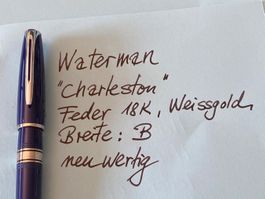 Waterman
"Charleston"
Feder 18K, Weissgold,
Breite: B
neuwertig